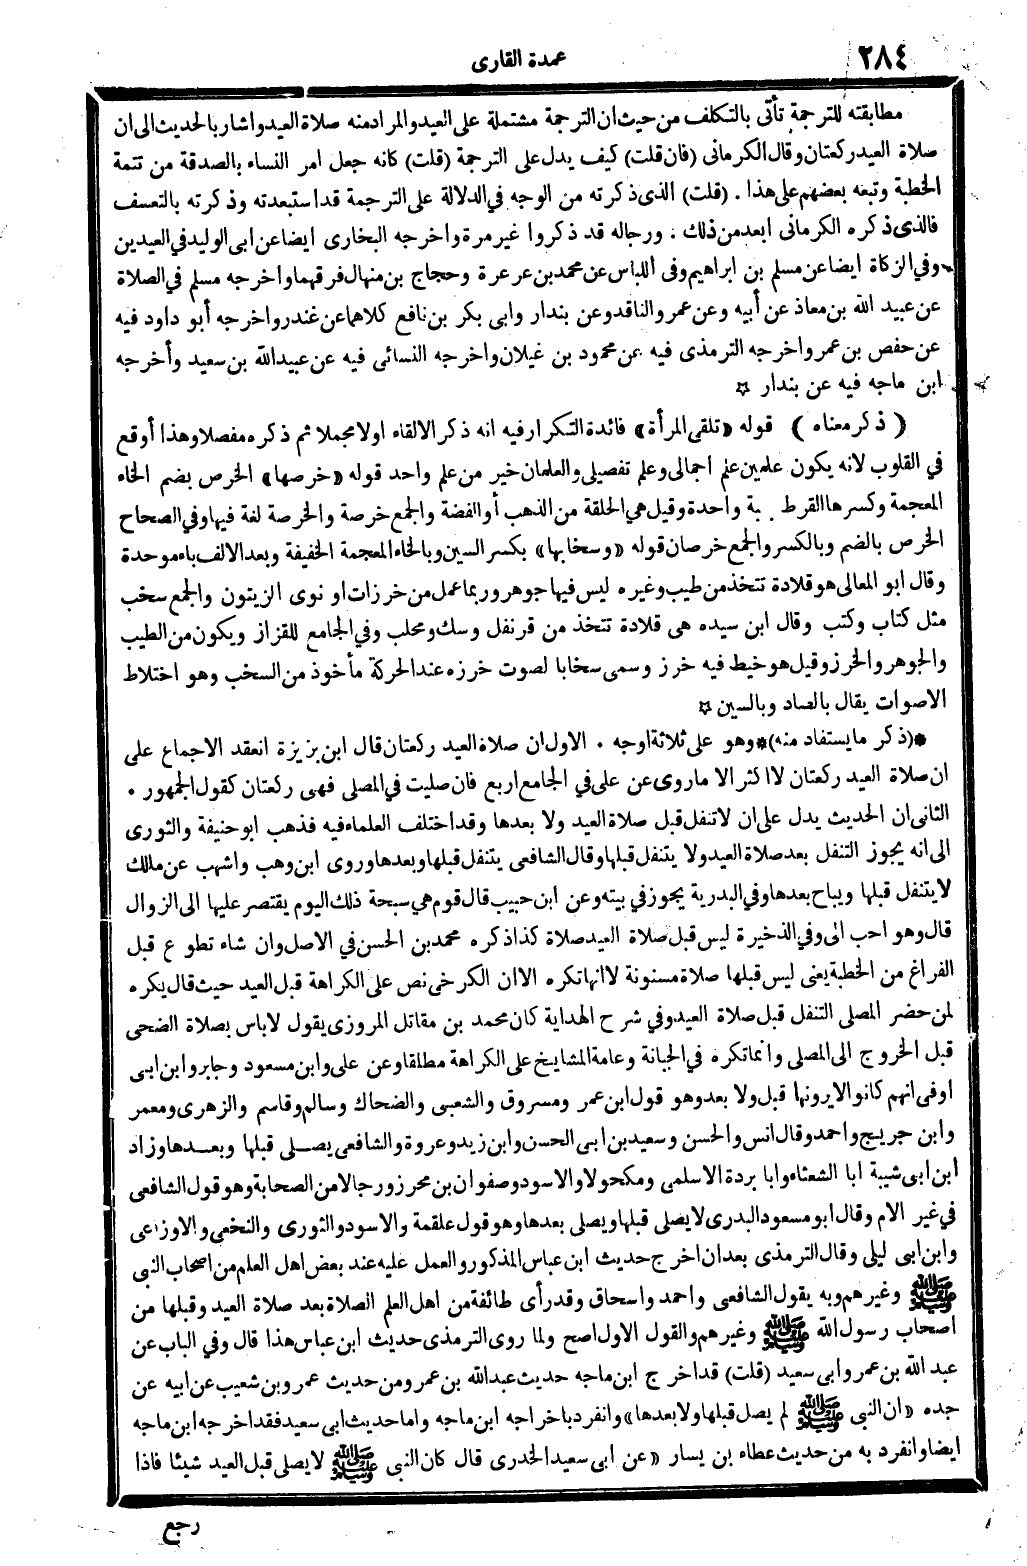 ٢٨٤
عمدة القارى
مطابقته للترجمة تأتى بالتكلف من حيث ان الترجمة مشتملة على العيد والمراد منه صلاة العيد واشار بالحديث الى ان
صلاة العيد ركعتان وقال الكرمانى (فان قلت) كيف يدل على الترجمة (قلت) كانه جعل امر النساء بالصدقة من تتمة
الخطبة وتبعه بعضهم على هذا . (قلت) الذى ذكرته من الوجه في الدلالة على الترجمة قد استبعدته وذكرته بالتعسف
فالذى ذكره الكرمانى ابعد من ذلك . ورجاله قد ذكروا غير مرة واخرجه البخارى ايضا عن ابى الوليد في العيدين
وفي الزكاة ايضا عن مسلم بن ابراهيم وفى اللباس عن محمد بن عرعرة وحجاج بن منهال فرقهما واخرجه مسلم في الصلاة
عن عبيد الله بن معاذ عن أبيه وعن عمرو الناقد وعن بندار وابى بكر بن نافع كلاهما عن غندر واخرجه أبو داود فيه
عن حفص بن عمر واخرجه الترمذى فيه عن محمود بن غيلان واخرجه النسائى فيه عن عبيد الله بن سعيد وأخرجه
ابن ماجه فيه عن بندار ☆
( ذكر معناه ) قوله «تلقى المرأة» فائدة التكرار فيه انه ذكر الالقاء اولا مجملا ثم ذكره مفصلا وهذا أوقع
في القلوب لانه يكون علمين علم اجمالى وعلم تفصيلى والعلمان خير من علم واحد قوله «خرصها» الخرص بضم الخاء
المعجمة وكسرها القرط بة واحدة وقيل هي الحلقة من الذهب أو الفضة والجمع خرصة والخرصة لغة فيها وفي الصحاح
الخرص بالضم وبالكسر والجمع خرصان قوله «وسخابها» بكسر السين وبالخاء المعجمة الخفيفة وبعد الالف باء موحدة
وقال ابو المعالى هو قلادة تتخذ من طيب وغيره ليس فيها جوهر وربما عمل من خرزات او نوى الزيتون والجمع سخب
مثل كتاب وكتب وقال ابن سيده هى قلادة تتخذ من قرنفل وسك ومحلب وفي الجامع للقزاز ويكون من الطيب
والجوهر والخرز وقيل هو خيط فيه خرز وسمى سخابا لصوت خرزه عند الحركة مأخوذ من السخب وهو اختلاط
الاصوات يقال بالصاد وبالسين ☆
*(ذكر ما يستفاد منه)* وهو على ثلاثة اوجه . الاول ان صلاة العيد ركعتان قال ابن بزيزة انعقد الاجماع على
ان صلاة العيد ركعتان لا اكثر الا ما روى عن على في الجامع اربع فان صليت في المصلى فهى ركعتان كقول الجمهور .
الثانى ان الحديث يدل على ان لا تنفل قبل صلاة العيد ولا بعدها وقد اختلف العلماء فيه فذهب ابو حنيفة والثورى
الى انه يجوز التنفل بعد صلاة العيد ولا يتنفل قبلها وقال الشافعى يتنفل قبلها وبعدها وروى ابن وهب واشهب عن مالك
لا يتنفل قبلها ويباح بعدها وفي البدرية يجوز في بيته وعن ابن حبيب قال قوم هي سبحة ذلك اليوم يقتصر عليها الى الزوال
قال وهو احب الى وفي الذخيرة ليس قبل صلاة العيد صلاة كذا ذكره محمد بن الحسن في الاصل وان شاء تطوع قبل
الفراغ من الخطبة يعنى ليس قبلها صلاة مسنونة لا انها تكره الا ان الكرخى نص على الكراهة قبل العيد حيث قال يكره
لمن حضر المصلى التنفل قبل صلاة العيد وفي شرح الهداية كان محمد بن مقاتل المروزى يقول لا باس بصلاة الضحى
قبل الخروج الى المصلى وانما تكره في الجبانة وعامة المشايخ على الكراهة مطلقا وعن على وابن مسعود وجابر وابن ابى
اوفى انهم كانوا لا يرونها قبل ولا بعد وهو قول ابن عمر ومسروق والشعبى والضحاك وسالم وقاسم والزهرى ومعمر
وابن جريج واحمد وقال انس والحسن وسعيد بن ابى الحسن وابن زيد وعروة والشافعى يصلى قبلها وبعدها وزاد
ابن ابى شيبة ابا الشعثاء وابا بردة الاسلمى ومكحولا والاسود وصفوان بن محرز ورجالا من الصحابة وهو قول الشافعى
في غير الام وقال ابو مسعود البدرى لا يصلى قبلها ويصلى بعدها وهو قول علقمة والاسود والثورى والنخعى والاوزاعى
وابن ابى ليلى وقال الترمذى بعد ان اخرج حديث ابن عباس المذكور والعمل عليه عند بعض اهل العلم من اصحاب النبى
ﷺ وغيرهم وبه يقول الشافعى واحمد واسحاق وقد رأى طائفة من اهل العلم الصلاة بعد صلاة العيد وقبلها من
اصحاب رسول الله ﷺ وغيرهم والقول الاول اصح ولما روى الترمذى حديث ابن عباس هذا قال وفي الباب عن
عبد الله بن عمر وابى سعيد (قلت) قد اخرج ابن ماجه حديث عبد الله بن عمرو من حديث عمرو بن شعيب عن ابيه عن
جده «ان النبى ﷺ لم يصل قبلها ولا بعدها» وانفرد باخراجه ابن ماجه واما حديث ابى سعيد فقد اخرجه ابن ماجه
ايضا وانفرد به من حديث عطاء بن يسار «عن ابى سعيد الخدرى قال كان النبى ﷺ لا يصلى قبل العيد شيئا فاذا
رجع